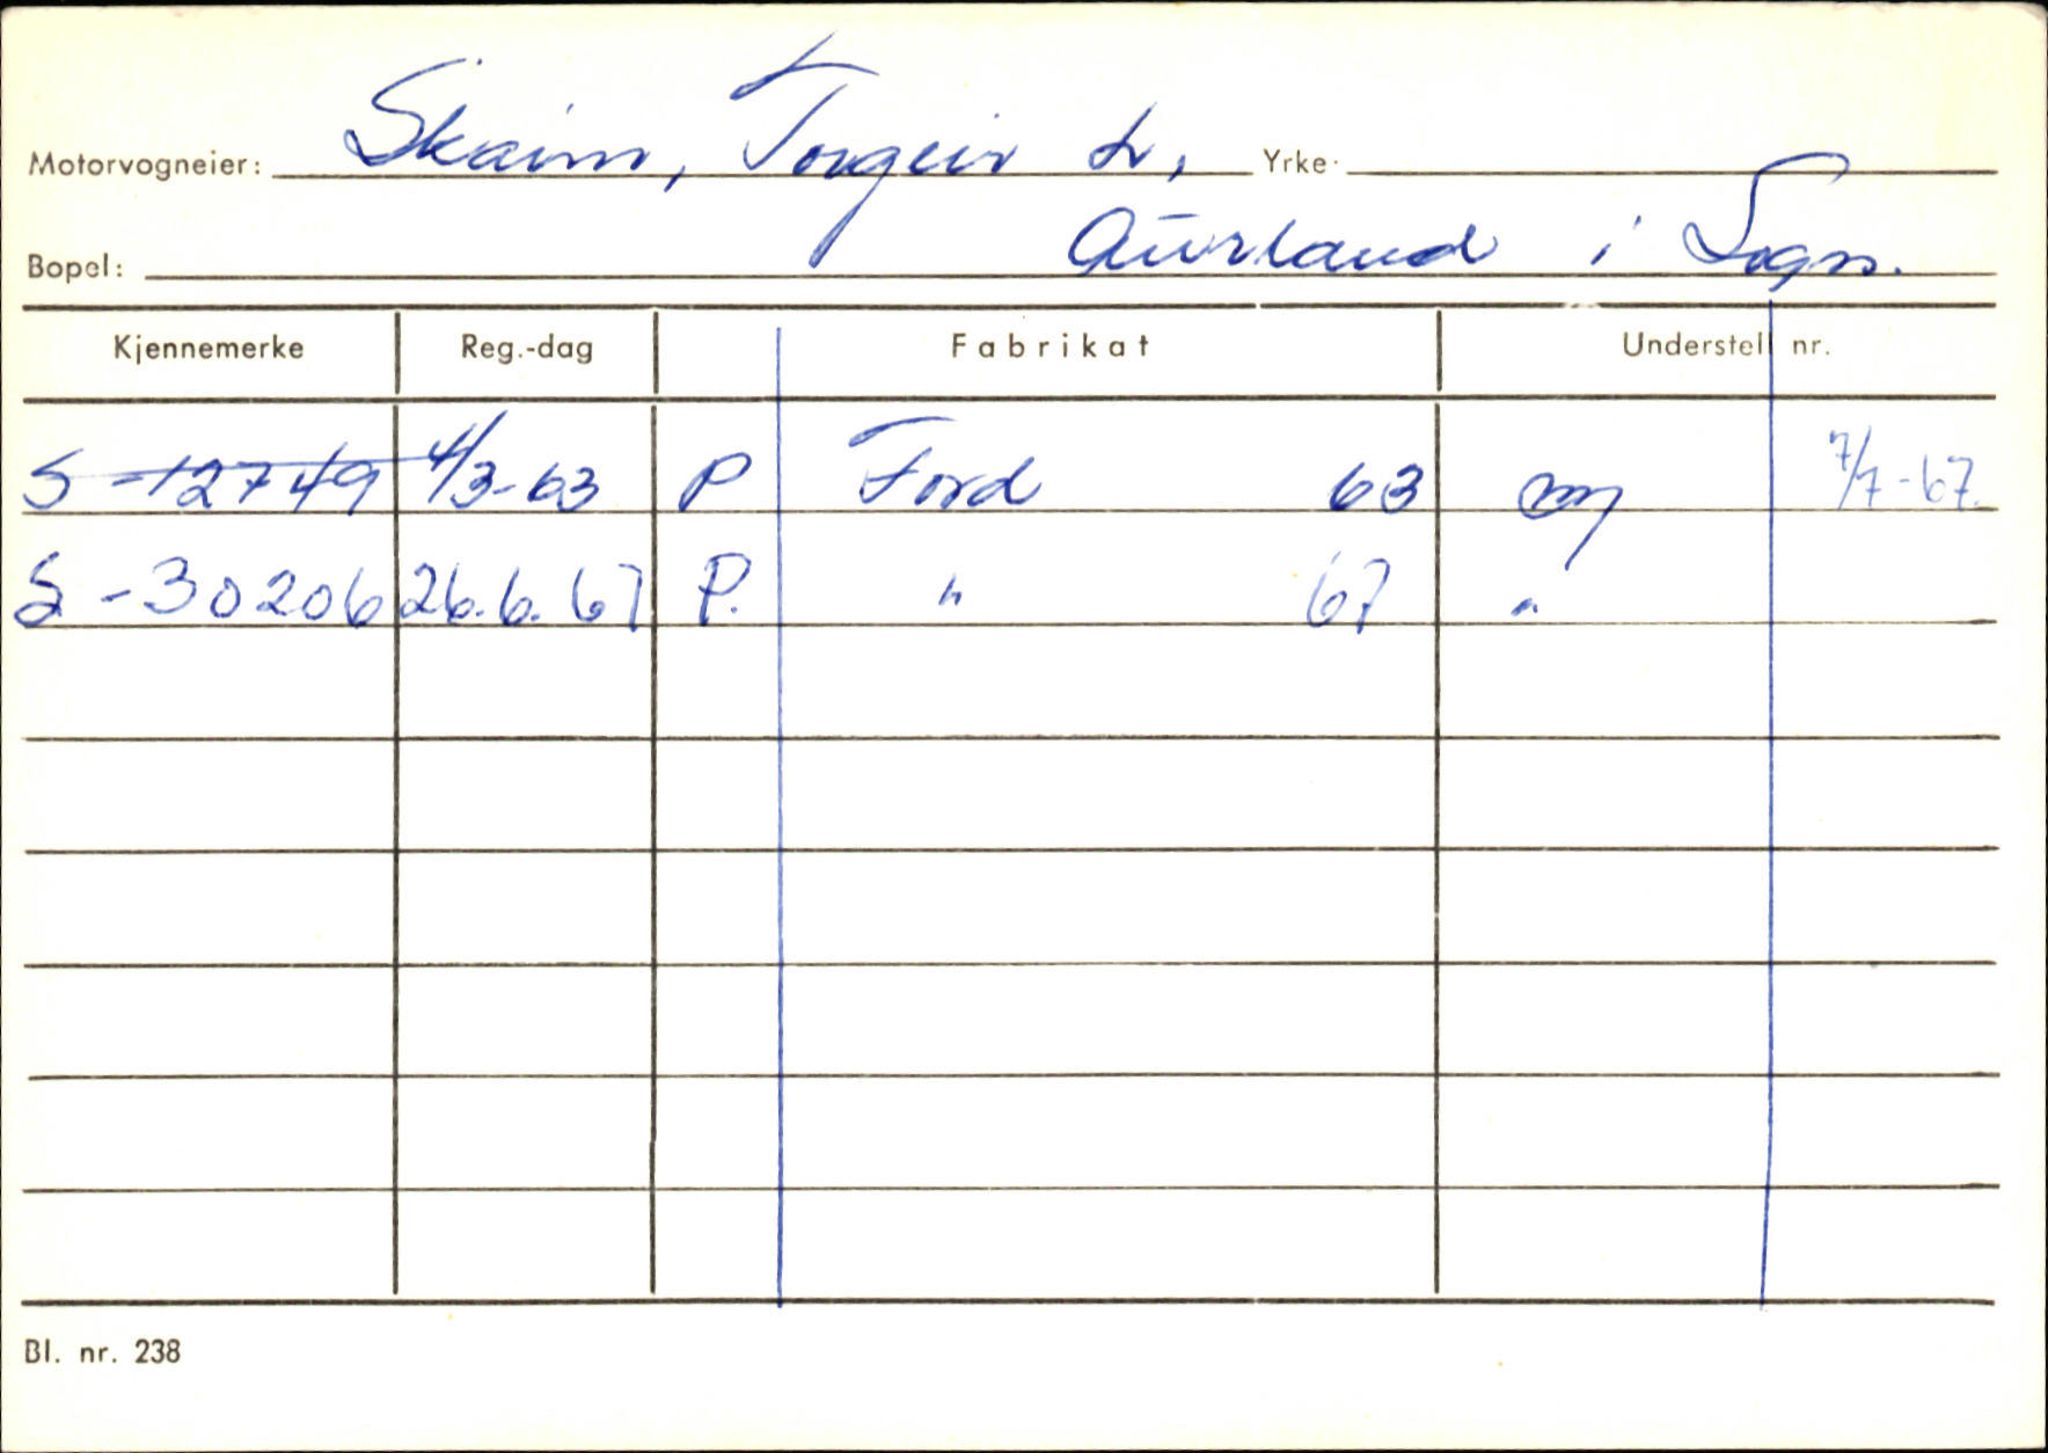 Motorvogneier: Skaim, Torgeir Yrke:
Bopel: Aurland i Sogn.
Kjennemerke Reg.-dag Fabrikat Understell nr.
S-12749 4/3-63 P Ford 63 ny 7/7-67.
S-30206 26.6.67 P. " 67 "
Bl. nr. 238